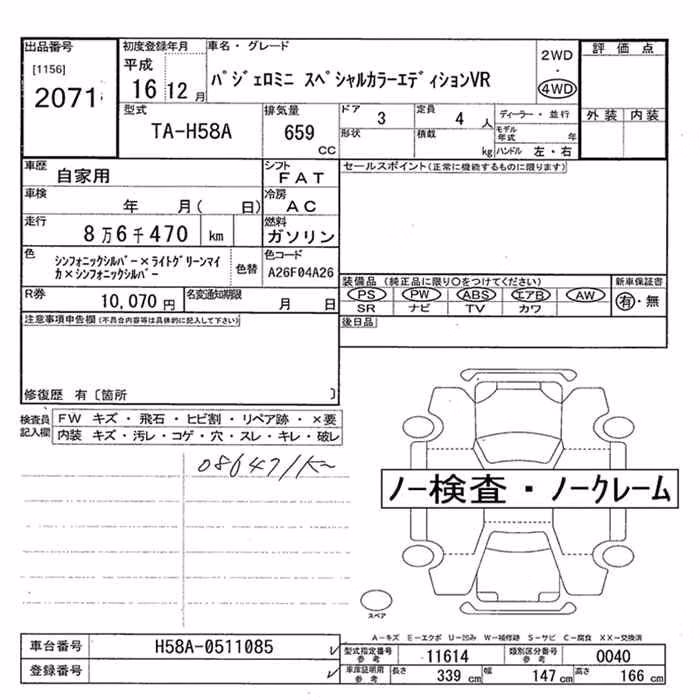 出品番号
[1156]
2071
初度登録年月
平成
16 12月
車名・グレード
パジェロミニ スペシャルカラーエディションVR
2WD
・
4WD
評価点
外装 内装
型式
TA-H58A
排気量
659
CC
ドア
3
定員
4 人
形状
積載
kg
ディーラー・並行
モデル年式 年
ハンドル 左・右
車歴
自家用
シフト
FAT
車検
年 月( 日)
冷房
AC
走行
8万6千470 km
燃料
ガソリン
色
シンフォニックシルバー×ライトグリーンマイ
カ×シンフォニックシルバー
色替
色コード
A26F04A26
R券
10,070円
名変通知期限
月 日
セールスポイント(正常に機能するものに限ります)
装備品 (純正品に限り○をつけてください)
PS PW ABS エアB AW
SR ナビ TV カワ
新車保証書
有・無
後日品
注意事項申告欄(不具合内容等は具体的に記入して下さい)
修復歴 有〔箇所 〕
検査員
記入欄
FW キズ・飛石・ヒビ割・リペア跡・×要
内装 キズ・汚レ・コゲ・穴・スレ・キレ・破レ
ノー検査・ノークレーム
スペア
A-キズ E-エクボ U-凹み W-補修跡 S-サビ C-腐食 XX-交換済
車台番号
H58A-0511085
登録番号
型式指定番号
参考
11614
類別区分番号
参考
0040
車庫証明用
参考
長さ 339 cm
幅 147 cm
高さ 166 cm